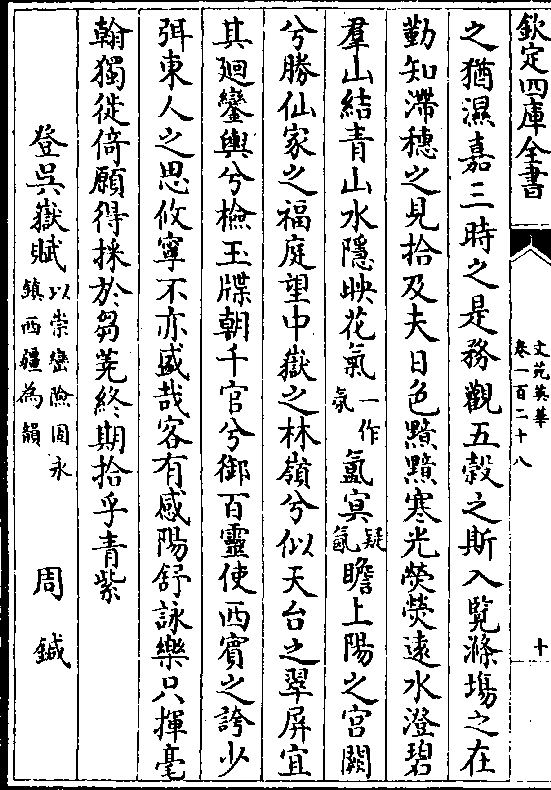 欽定四庫全書
文苑英華
卷一百二十八
十
之猶濕嘉三時之是務觀五穀之斯入覽滌場之在
勤知滯穗之見拾及夫日色黯黯寒光熒熒遠水澄碧
羣山結青山水隱映花氣一作氛氳冥疑氤瞻上陽之宮闕
兮勝仙家之福庭望中嶽之林嶺兮似天台之翠屏宜
其廻鑾輿兮檢玉牒朝千官兮御百靈使西賓之誇少
弭東人之思攸寧不亦盛哉客有感陽舒詠樂只揮毫
翰獨徙倚願得採於芻蕘終期拾乎青紫
登呉嶽賦以崇巒險固永鎮西疆為韻 周鍼